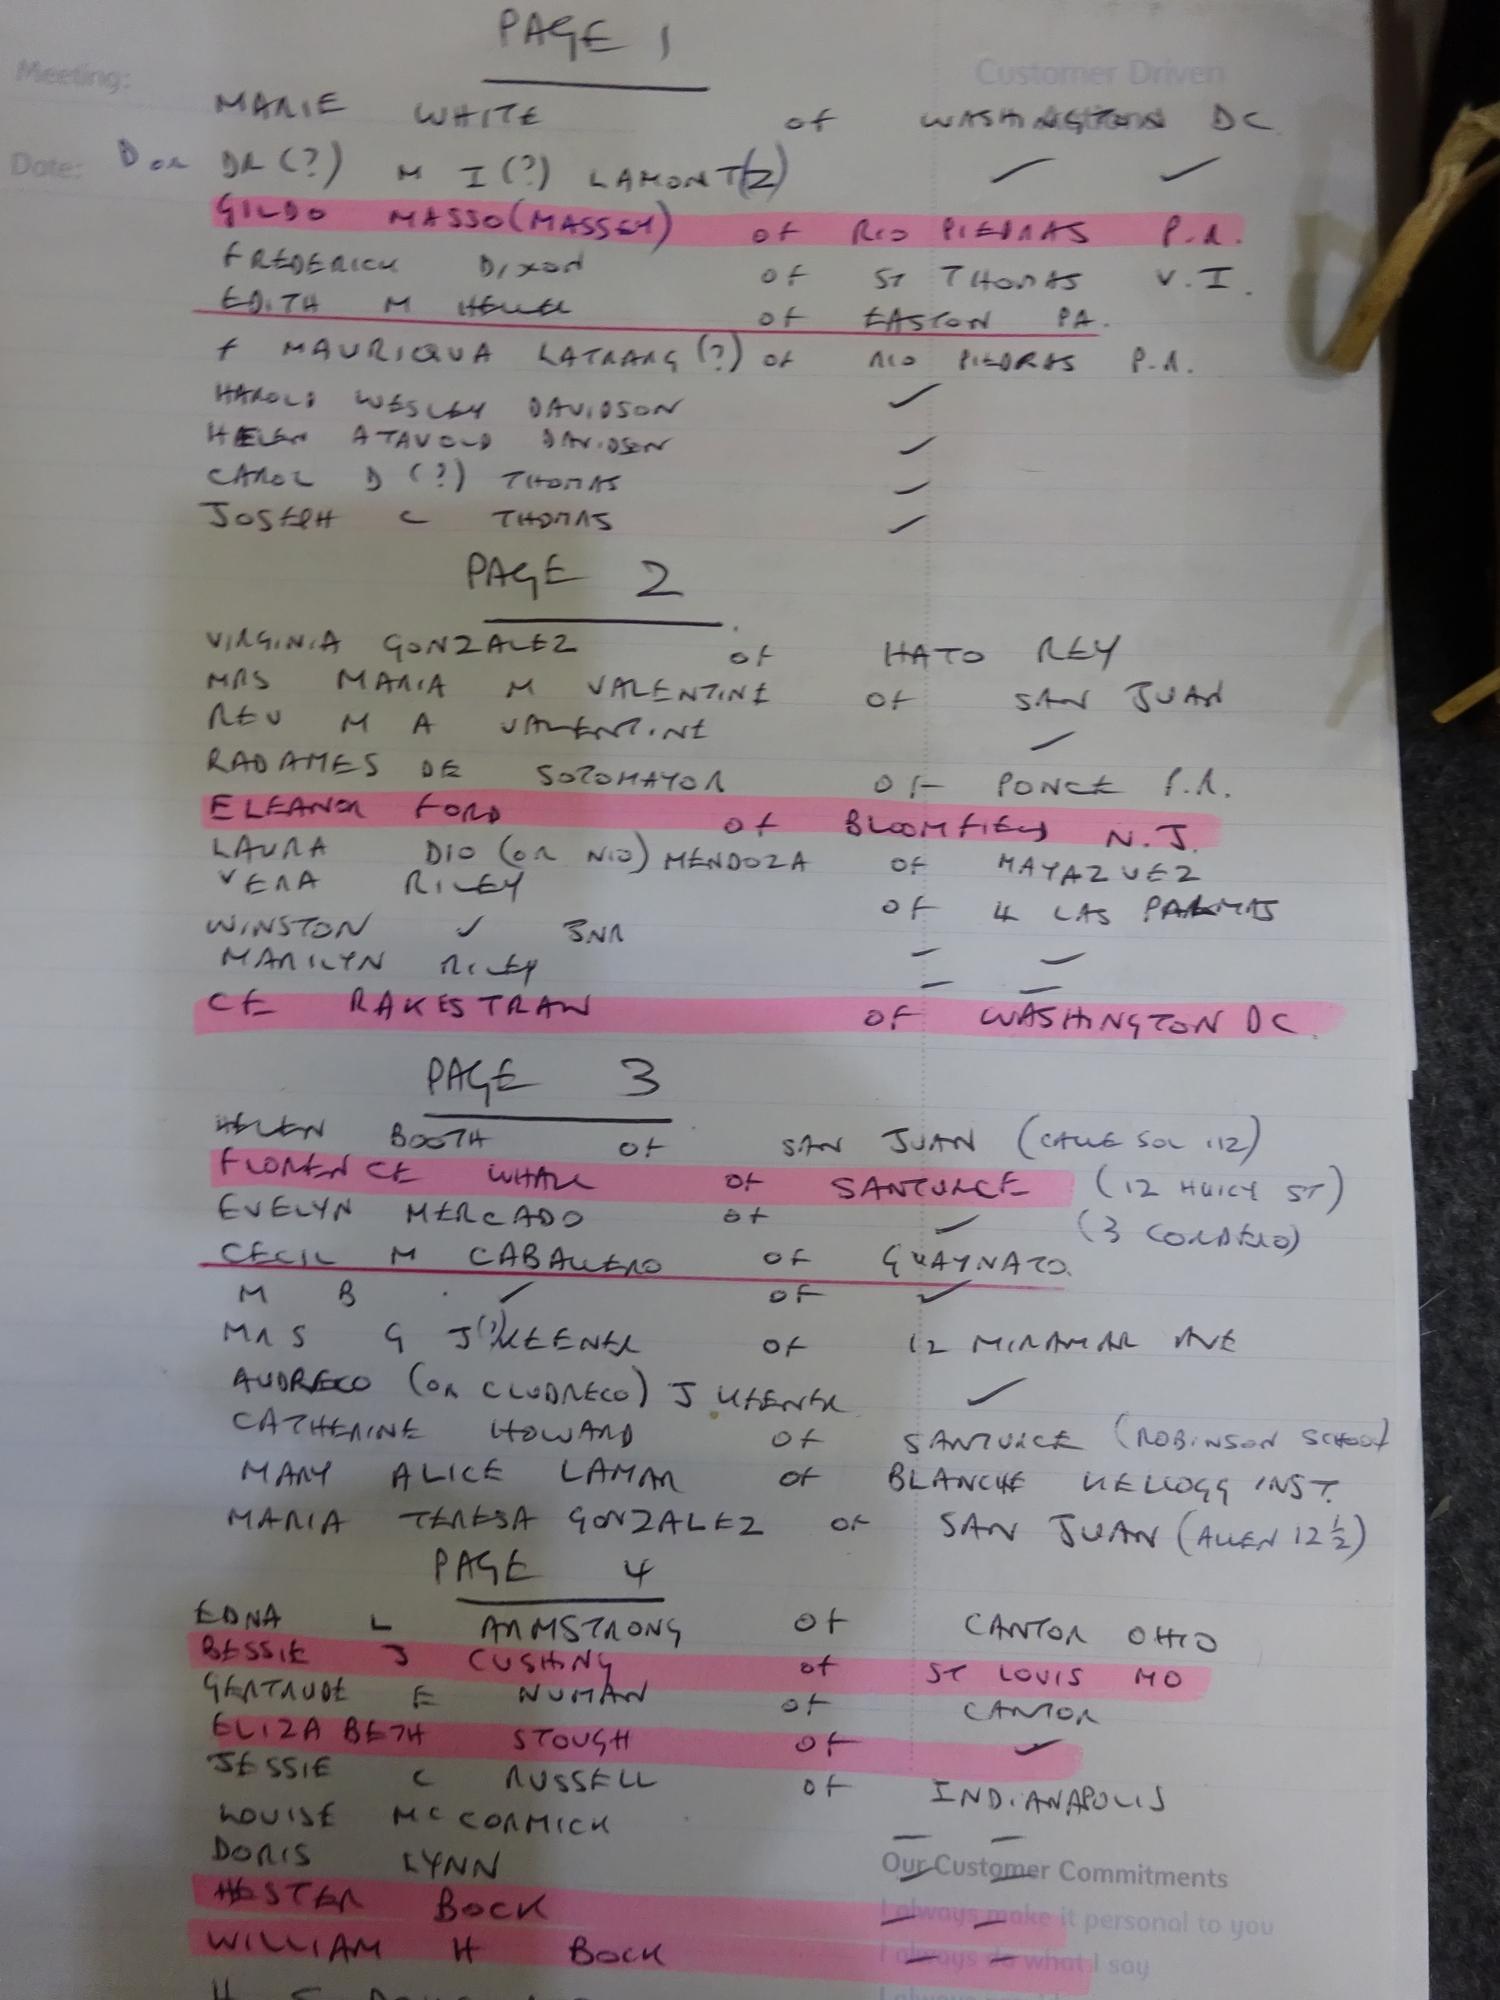 PAGE 1
Meeting: Customer Driven
MARIE WHITE of WASHINGTON DC
Date: D or DR (?) M I (?) LAMONT(Z) ✓ ✓
GILDO MASSO (MASSEY) of RIO PIEDRAS P.R.
FREDERICK DIXON of ST THOMAS V.I.
EDITH M of EASTON PA.
+ MAURIQUA LATRANG (?) of RIO PIEDRAS P.R.
HAROLD WESLEY DAVIDSON ✓
HELEN ATAVOLD DAVIDSON ✓
CAROL D (?) THOMAS ✓
JOSEPH C THOMAS ✓
PAGE 2
VIRGINIA GONZALEZ of HATO REY
MRS MARIA M VALENTINE of SAN JUAN
REV M A VALENTINE ✓
RADAMES DE SOTOMAYOR OF PONCE P.R.
ELEANOR FORD of BLOOMFIELD N.J.
LAURA DIO (OR NIO) MENDOZA OF MAYAZUEZ
VERA RILEY OF 4 LAS PALMAS
WINSTON ✓ JNR – –
MARILYN RILEY – –
CE RAKESTRAW OF WASHINGTON DC.
PAGE 3
HELEN BOOTH OF SAN JUAN (CALLE SOL 112)
FLORENCE WHALL of SANTURCE (12 HUICY ST)
EVELYN MERCADO of ✓ (3 CORDERO)
CECIL M CABALLERO OF GUAYNATO.
M B ✓ OF ✓
MRS G J(?) KEENER OF 12 MIRAMAR AVE
AUDRECO (OR CLUDRECO) J KEENER ✓
CATHERINE HOWARD OF SANTURCE (ROBINSON SCHOOL)
MARY ALICE LAMAR OF BLANCHE KELLOGG INST.
MARIA TERESA GONZALEZ OF SAN JUAN (ALLEN 12 1/2)
PAGE 4
EDNA L ARMSTRONG OF CANTOR OHIO
BESSIE J CUSHING of ST LOUIS MO
GERTRUDE E NUMAN OF CANTOR
ELIZABETH STOUGH OF ✓
JESSIE C RUSSELL OF INDIANAPOLIS
LOUISE MCCORMICK – –
DORIS LYNN – –
Our Customer Commitments
HESTER BOCK – –
I always make it personal to you
WILLIAM H BOCK – –
I always do what I say